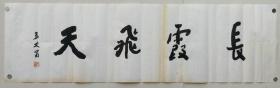 長霞飛天